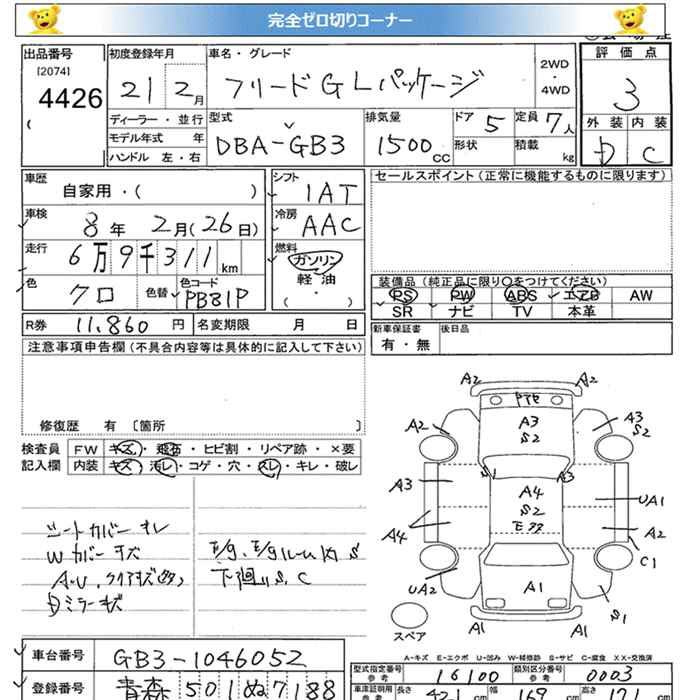 完全ゼロ切りコーナー
出品番号
[2074]
4426
(
初度登録年月
21 2月
車名・グレード
フリードGLパッケージ
2WD
・
4WD
評価点
3
外装 内装
D C
ディーラー・並行
モデル年式 年
ハンドル 左・右
型式
DBA-GB3
排気量
1500cc
ドア 5
形状
定員 7人
積載 kg
車歴
自家用・( )
車検
8年 2月(26日)
走行
6万9千311km
色
クロ
色替
色コード
PB81P
シフト
IAT
冷房
AAC
燃料
ガソリン
軽・油
( ・ )
セールスポイント(正常に機能するものに限ります)
装備品(純正品に限り○をつけてください)
PS PW ABS エアB AW
SR ナビ TV 本革
R券 11,860円 名変期限 月 日
新車保証書
有・無
後日品
注意事項申告欄(不具合内容等は具体的に記入して下さい)
修復歴 有 〔箇所 〕
検査員
記入欄
FW キズ・飛石・ヒビ割・リペア跡・×要
内装 キズ・汚レ・コゲ・穴・スレ・キレ・破レ
シートカバー オレ
Wカバー キズ
Dミラー キズ
下廻りS、C
A2 A2
A3
S2
A2
A3
S2
S1
A3
A3
A4
S2
UA1
A4
A2
C1
UA2
A1
S1
A1 A1
スペア
A-キズ E-エクボ U-凹み W-補修跡 S-サビ C-腐食 XX-交換済
車台番号 GB3-1046052
登録番号 青森501ぬ7188
型式指定番号
参考
16100
類別区分番号
参考
0003
車庫証明用
参考
長さ 421cm
幅 169cm
高さ 171cm